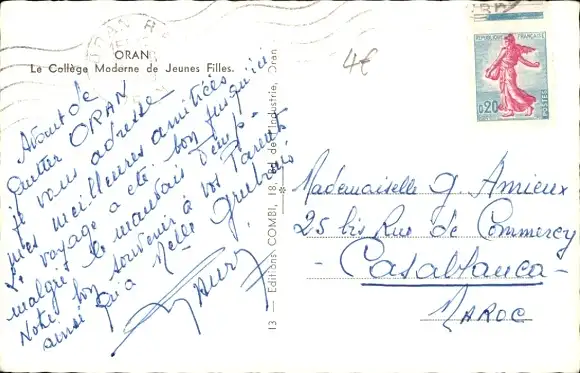 ORAN
ORAN
Le Collège Moderne de Jeunes Filles.
Avant de
quitter ORAN
je vous adresse
mes meilleures amitiés
Le voyage a été bon jusqu'ici
malgré le mauvais temps.
Notre bon souvenir à vos Parents
ainsi qu'à Melle
13 — Editions COMBI, 18, Bd de l'Industrie, Oran
4€
REPUBLIQUE FRANÇAISE
0,20
POSTES
Mademoiselle G. Amieux
25 bis Rue de Commercy
- CASABLANCA -
MAROC